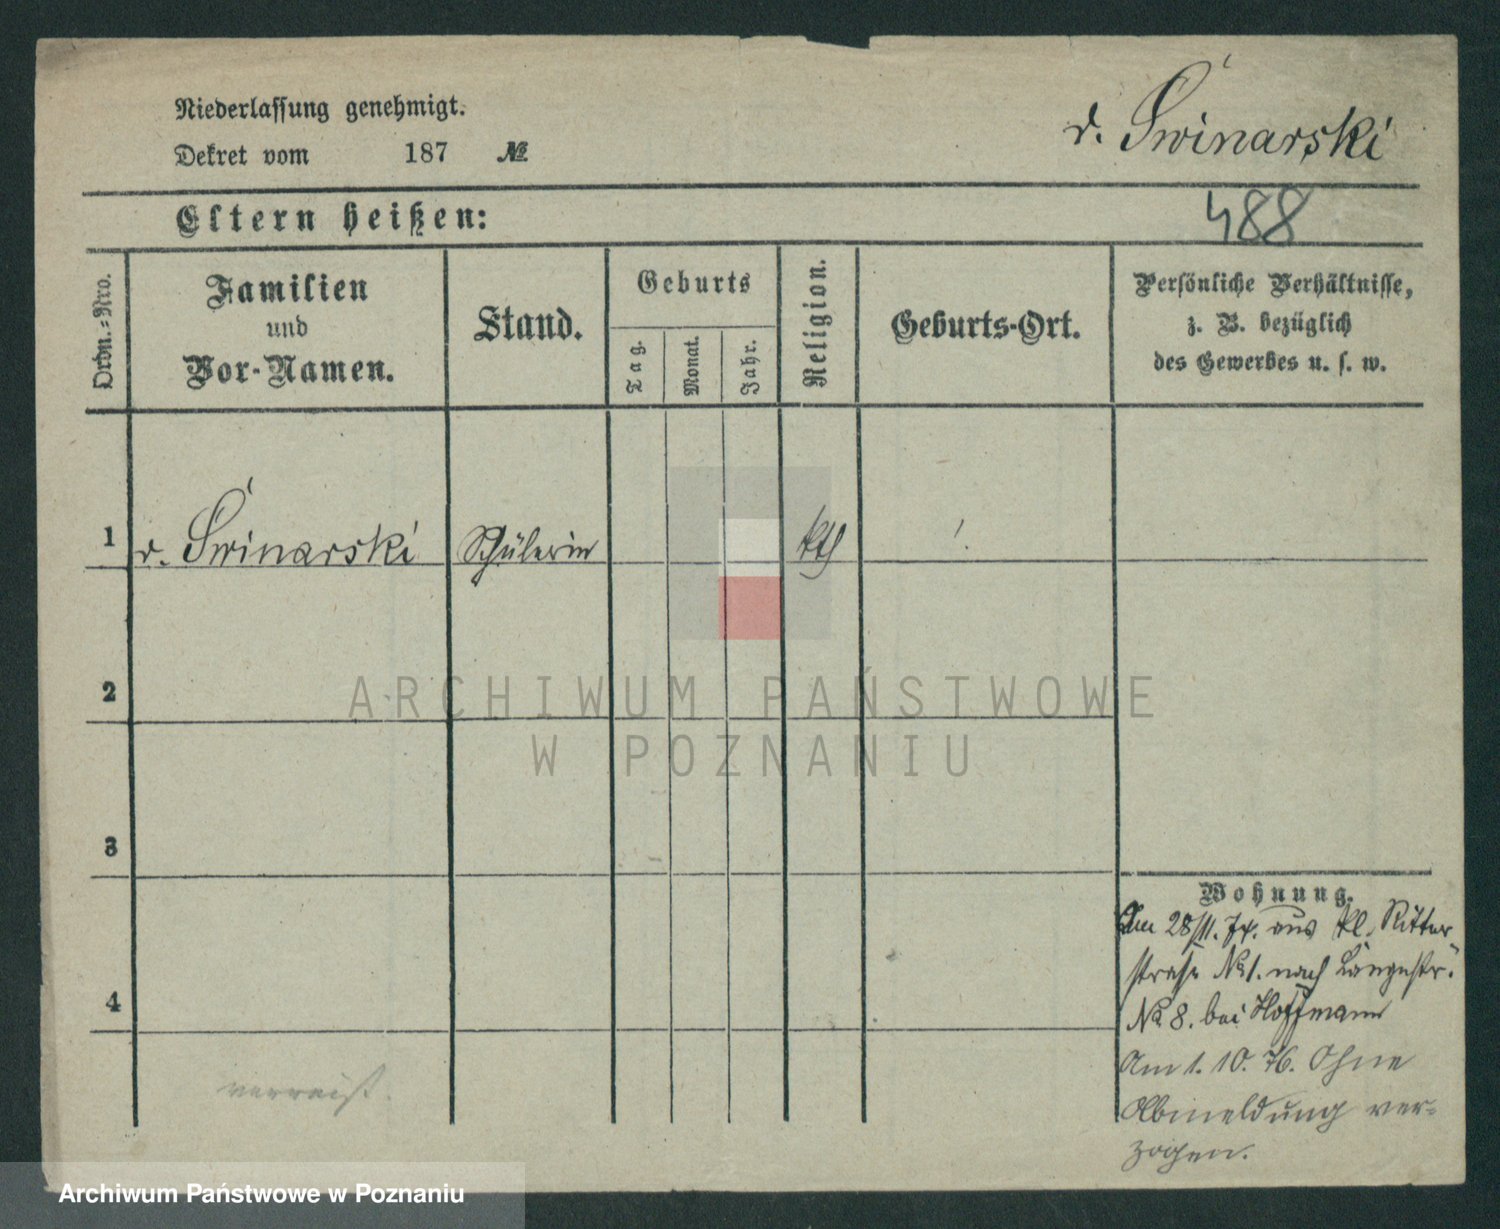 Niederlassung genehmigt.
Dekret vom 187 №
v. Świnarski
488
Eltern heißen:
Ordn.=Nro.
Familien
und
Vor-Namen.
Stand.
Geburts
Tag.
Monat.
Jahr.
Religion.
Geburts-Ort.
Persönliche Verhältnisse,
z. B. bezüglich
des Gewerbes u. s. w.
1 v. Świnarski Schülerin kth
2
ARCHIWUM PAŃSTWOWE
W POZNANIU
3
4
Wohnung.
Am 28/11. 74. aus kl. Ritter
straße No 1. nach Langestr.
No 8. bei Hoffmann
Am 1. 10. 76. Ohne
Abmeldung ver-
zogen.
verreist.
Archiwum Państwowe w Poznaniu